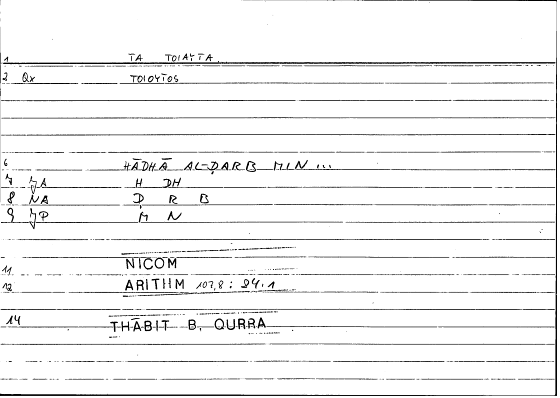 1 TA TOIAYTA
2 Qx TOIOYTOS
6 HĀDHĀ AL-ḌARB MIN ...
7 JA H DH
8 NA Ḍ R B
9 JP M N
11 NICOM
12 ARITHM 107,8 : 94.1
14 THĀBIT B. QURRA